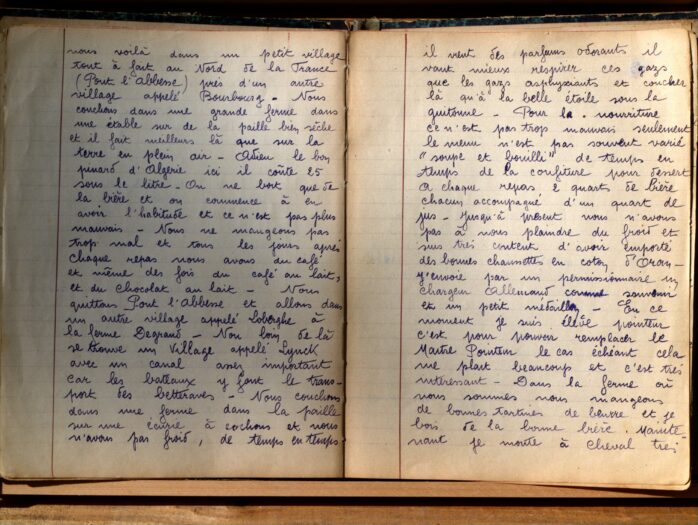 nous voilà dans un petit village
tout à fait au Nord de la France
(Pont l'Abbesse) près d'un autre
village appelé Bourbourg - Nous
couchons dans une grande ferme dans
une étable sur de la paille bien sèche
et il fait meilleurs là que sur la
terre en plein air - Adieu le bon
pinard d'Algérie ici il coûte 25
sous le litre - On ne boit que de
la bière et on commence à en
avoir l'habitude et ce n'est pas plus
mauvais - Nous ne mangeons pas
trop mal et tous les jours après
chaque repas nous avons du café
et même des fois du café au lait,
et du chocolat au lait - Nous
quittons Pont l'Abbesse et allons dans
un autre village appelé Loberghe à
la ferme Degrand - Non loin de là
se trouve un Village appelé Lynck
avec un canal assez important
car les bateaux y font le trans-
port des betteraves - Nous couchons
dans une ferme dans la paille
sur une écurie à cochons et nous
n'avons pas froid, de temps en temps
il vent des parfums odorants il
vaut mieux respirer ces gazs
que les gazs asphyxiants et coucher
là qu'à la belle étoile sous la
guitoune - Pour la nourriture
ce n'est pas trop mauvais seulement
le menu n'est pas souvent varié
"soupe et bouilli" de temps en
temps de la confiture pour dessert
à chaque repas, 2 quarts de bière
chacun accompagné d'un quart de
jus - jusqu'à présent nous n'avons
pas à nous plaindre du froid et
suis très content d'avoir emporté
des bonnes chaussettes en coton d'Oran -
j'envoie par un permissionnaire un
chargeur Allemand comme souvenir
et un petit médaillon - En ce
moment je suis élève pointeur
c'est pour pouvoir remplacer le
Maître Pointeur le cas échéant cela
me plait beaucoup et c'est très
intéressant - Dans la ferme où
nous sommes nous mangeons
de bonnes tartines de beurre et je
bois de la bonne bière. Mainte-
nant je monte à cheval très